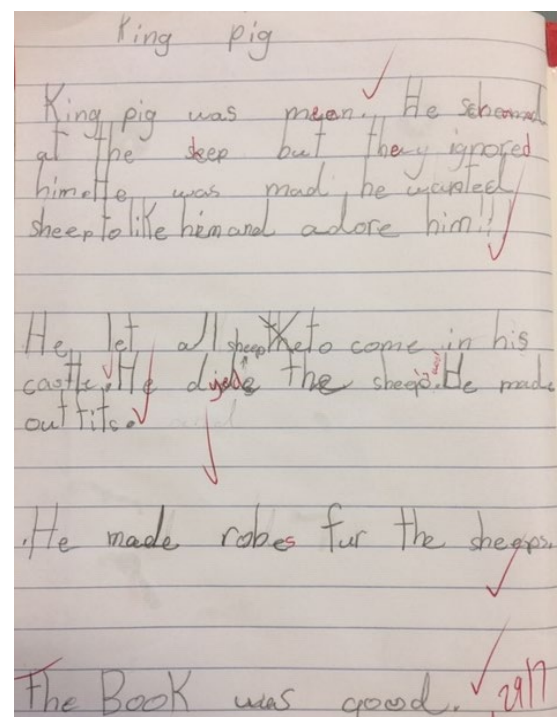 King pig
King pig was mean. He
at the seep but they ignored
him. He was mad he wanted
sheep to like him and adore him!!
He let all sheep to come in his
castle. He dyed the sheep's wool. He made
outfits.
.He made robes fur the sheeps.
The Book was good. 29/7